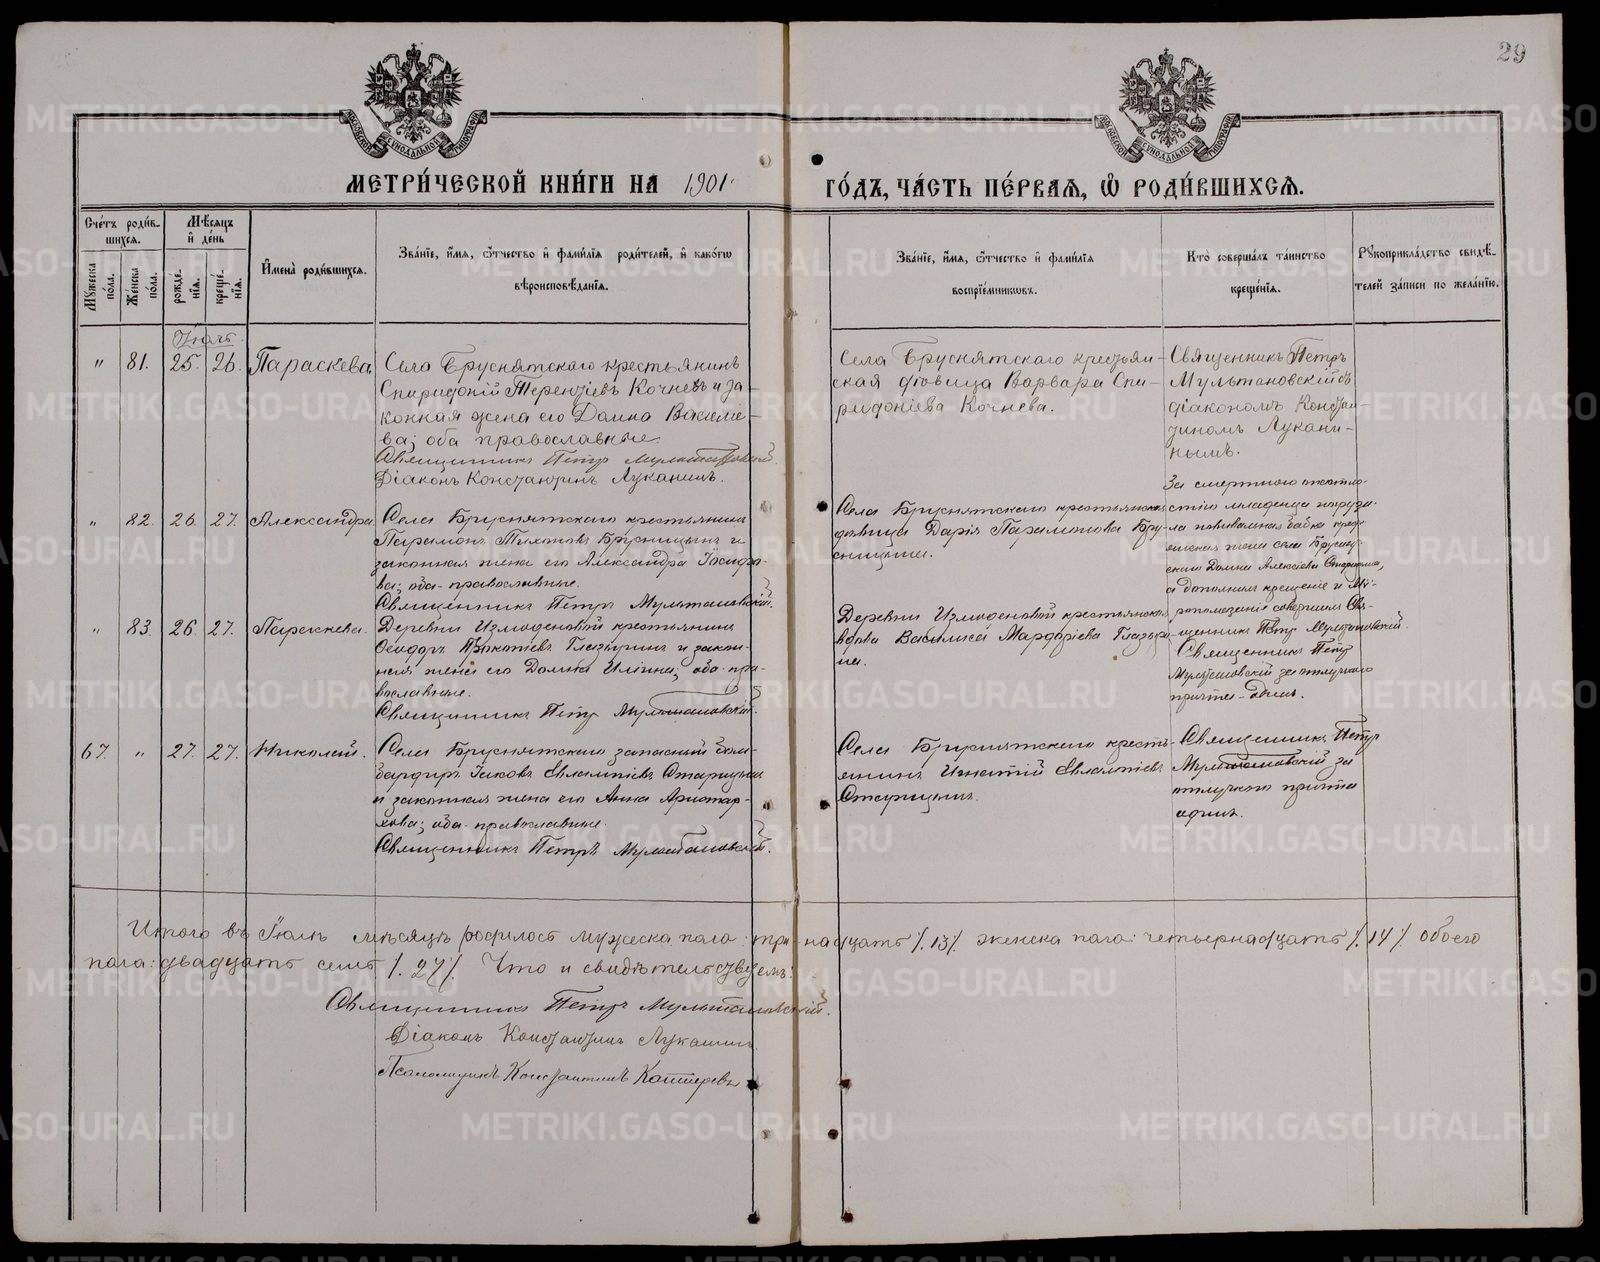 29
МОСКОВСКОЙ СУНОДАЛЬНОЙ ТИПОГРАФІИ
МОСКОВСКОЙ СУНОДАЛЬНОЙ ТИПОГРАФІИ
МЕТРИ́ЧЕСКОЙ КНИ́ГИ НА 1901.
ГО́ДЪ, ЧА́СТЬ ПЕ́РВАЯ, Ѡ҆ РОДИ́ВШИХСЯ.
Сче́тъ роди́в-
шихся.
Му́жеска по́ла.
Же́нска по́ла.
Мѣ́сяцъ
и҆ де́нь
рожде́-
нія.
креще́-
нія.
И҆мена̀ роди́вшихся.
Зва́ніе, и҆́мя, ѻ҆́тчество и҆ фами́лія роди́телей, и҆ како́гѡ
вѣроисповѣ́данія.
Зва́ніе, и҆́мя, ѻ҆́тчество и҆ фами́лія
воспріе́мниковъ.
Кто̀ соверша́лъ та́инство
креще́нія.
Рукоприкла́дство свидѣ́-
телей за́писи по жела́нію.
Іюль
" 81. 25. 26. Параскева.
Села Бруснятскаго крестьянинъ
Спиридоній Терентіевъ Кочневъ и за-
конная жена его Домна Василие-
ва; оба православные.
Священникъ Петръ Мультановскій
Діаконъ Константинъ Луканинъ.
Села Бруснятскаго крестьян-
ская дѣвица Варвара Спи-
ридоніева Кочнева.
Священникъ Петръ
Мультановскій съ
діакономъ Констан-
тиномъ Лукани-
нымъ.
" 82. 26. 27. Александра.
Села Бруснятскаго крестьянинъ
Парамонъ Тихоновъ Брусницынъ и
законная жена его Александра Іосифо-
ва; оба православные.
Священникъ Петръ Мультановскій.
Села Бруснятскаго крестьянская
дѣвица Дарія Парамонова Бру-
сницына.
За смертною опасно-
стію младенца погрузи-
ла повивальная бабка кресть-
янская жена села Брусня-
скаго Домна Алексіева Старицына,
а дополнилъ крещеніе и Мѵ-
ропомазаніе совершилъ Свя-
щенникъ Петръ Мультановскій.
" 83. 26. 27. Параскева.
Деревни Измоденовой крестьянинъ
Ѳеодоръ Прокопіевъ Глазыринъ и закон-
ная жена его Домна Ильина; оба пра-
вославные.
Священникъ Петръ Мультановскій.
Деревни Измоденовой крестьянская
вдова Василиса Мардаріева Глазыри-
на.
Священникъ Петръ
Мультановскій за отлучкою
причта одинъ.
67. " 27. 27. Николай.
Села Бруснятскаго запасный бом-
бардиръ Іаковъ Евлампіевъ Старицынъ
и законная жена его Анна Аристар-
хова; оба православные.
Священникъ Петръ Мультановскій.
Села Бруснятскаго кресть-
янинъ Игнатій Евлампіевъ
Старицынъ.
Священникъ Петръ
Мультановскій за
отлучкою причта
одинъ.
Итого въ Іюлѣ мѣсяцѣ родилось мужеска пола: тринадцать /.13/. женска пола: четырнадцать /.14/. обоего
пола: двадцать семь /.27/. Что и свидѣтельствуемъ:
Священникъ Петръ Мультановскій.
Діаконъ Константинъ Луканинъ.
Псаломщикъ Константинъ